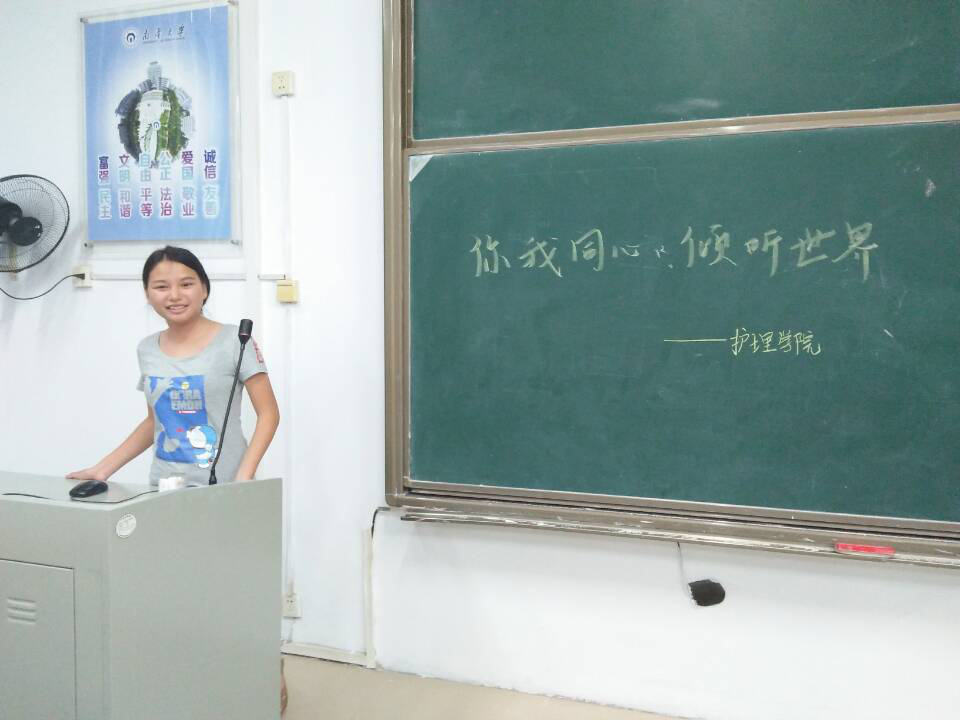 南华大学
诚信 友善
爱国 敬业
公正 法治
自由 平等
文明 和谐
富强 民主
你我同心,倾听世界
——护理学院
DORA
EMON